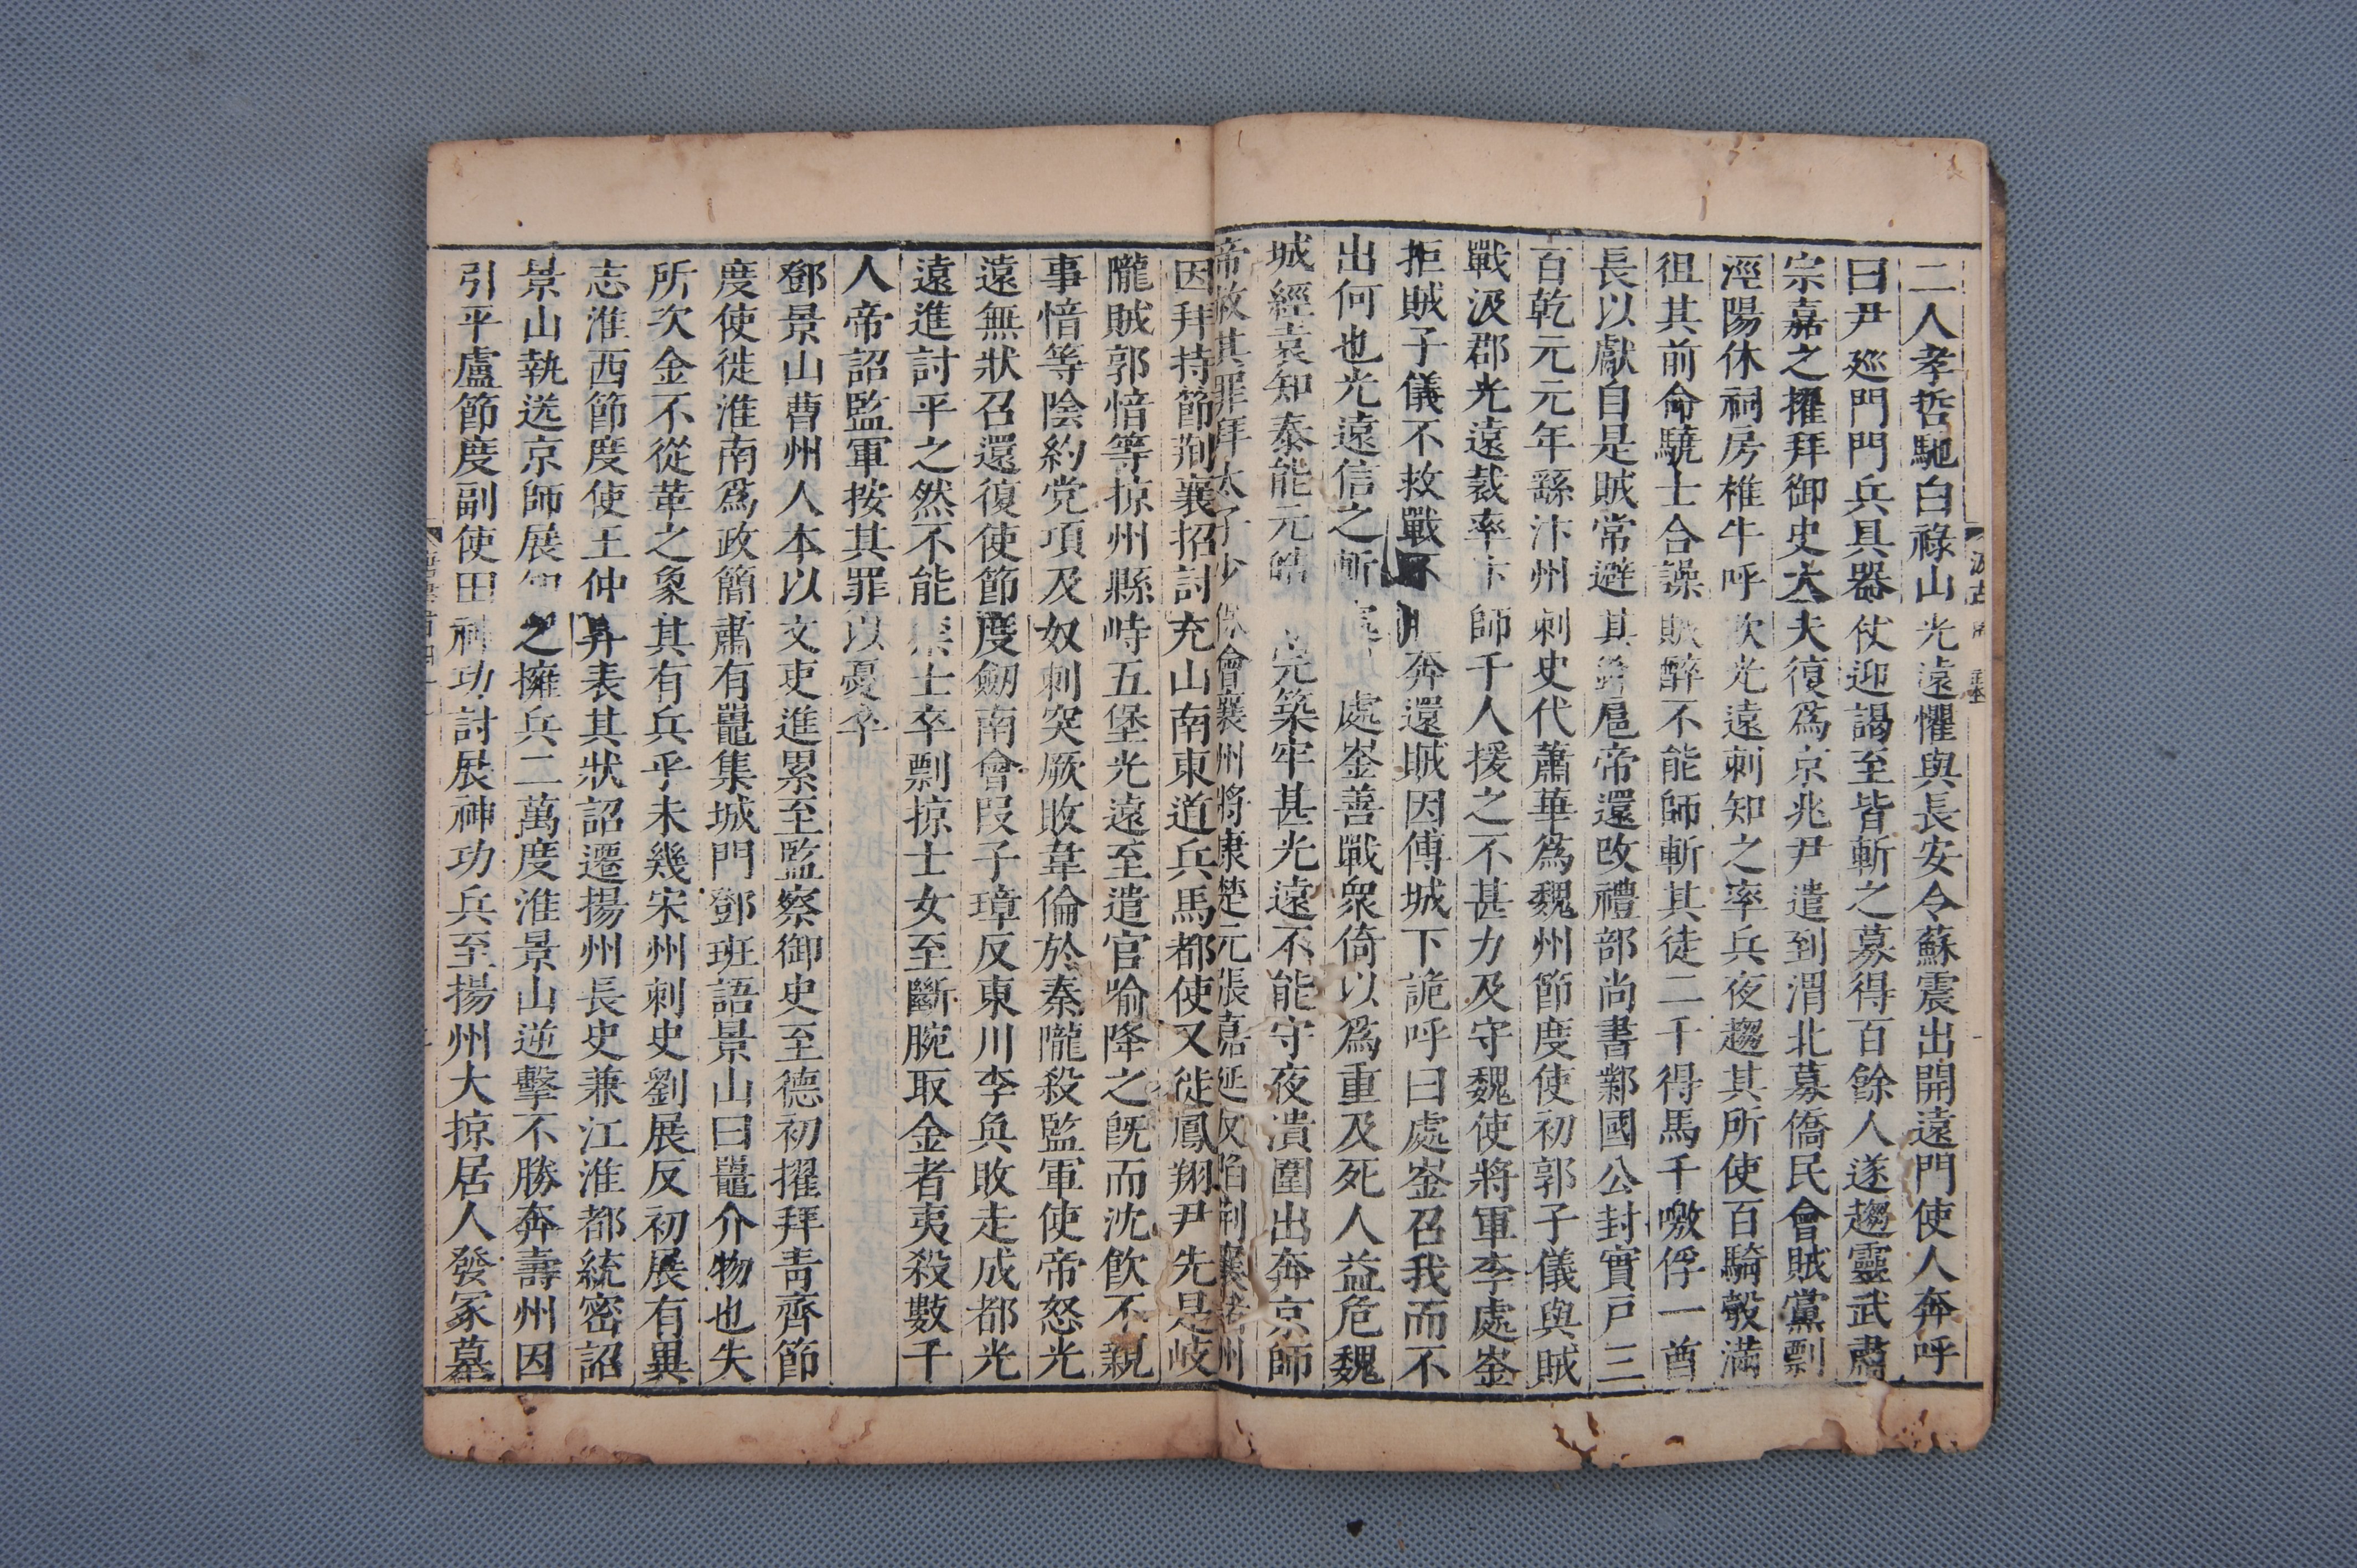 二人孝哲馳白祿山光遠懼與長安令蘇震出開遠門使人奔呼
曰尹廵門門兵具器仗迎謁至皆斬之募得百餘人遂趨靈武肅
宗嘉之擢拜御史大夫復爲京兆尹遣到渭北募僑民會賊黨剽
涇陽休祠房椎牛呼飲光遠刺知之率兵夜趨其所使百騎彀滿
徂其前命驍士合譟賊醉不能師斬其徒二千得馬千噭俘一酋
長以獻自是賊常避其鋒扈帝還改禮部尚書鄴國公封實戸三
百乾元元年繇汴州刺史代蕭華爲魏州節度使初郭子儀與賊
戰汲郡光遠裁率汴師千人援之不甚力及守魏使將軍李處崟
拒賊子儀不救戰不奔還賊因傅城下詭呼曰處崟召我而不
出何也光遠信之斬處崟善戰衆倚以爲重及死人益危魏
城經袁知泰能元皓完築牢甚光遠不能守夜潰圍出奔京師
帝赦其罪拜太子少保會襄州將康楚元張嘉延反陷荆襄諸州
因拜持節荆襄招討充山南東道兵馬都使又徙鳳翔尹先是岐
隴賊郭愔等掠州縣峙五堡光遠至遣官喻降之旣而沈飲不親
事愔等陰約党項及奴刺突厥敗韋倫於秦隴殺監軍使帝怒光
遠無狀召還復使節度劒南會叚子璋反東川李奐敗走成都光
遠進討平之然不能士卒剽掠士女至斷腕取金者夷殺數千
人帝詔監軍按其罪以憂卒
鄧景山曹州人本以文吏進累至監察御史至德初擢拜靑齊節
度使徙淮南爲政簡肅有鼉集城門鄧班語景山曰鼉介物也失
所次金不從革之象其有兵乎未幾宋州刺史劉展反初展有異
志淮西節度使王仲昇表其狀詔遷揚州長史兼江淮都統密詔
景山執送京師展知之擁兵二萬度淮景山逆擊不勝奔壽州因
引平盧節度副使田神功討展神功兵至揚州大掠居人發冢墓